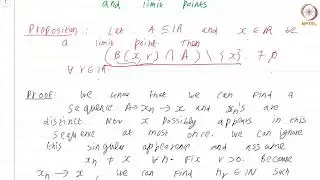 and limit points
NPTEL
Proposition: Let A ⊆ ℝ and x ∈ ℝ be
a limit point Then
(B(x, r) ∩ A) \ {x} ≠ ∅
∀ r ∈ ℝ.
Proof: We know that we can find a
sequence A ∋ xn → x and xn's are
distinct Now x possibly appears in this
sequence at most once. We can ignore
this singular appearence and assume
xn ≠ x ∀ n. Fix r > 0. Because
xn → x, we can find nr ∈ ℕ such